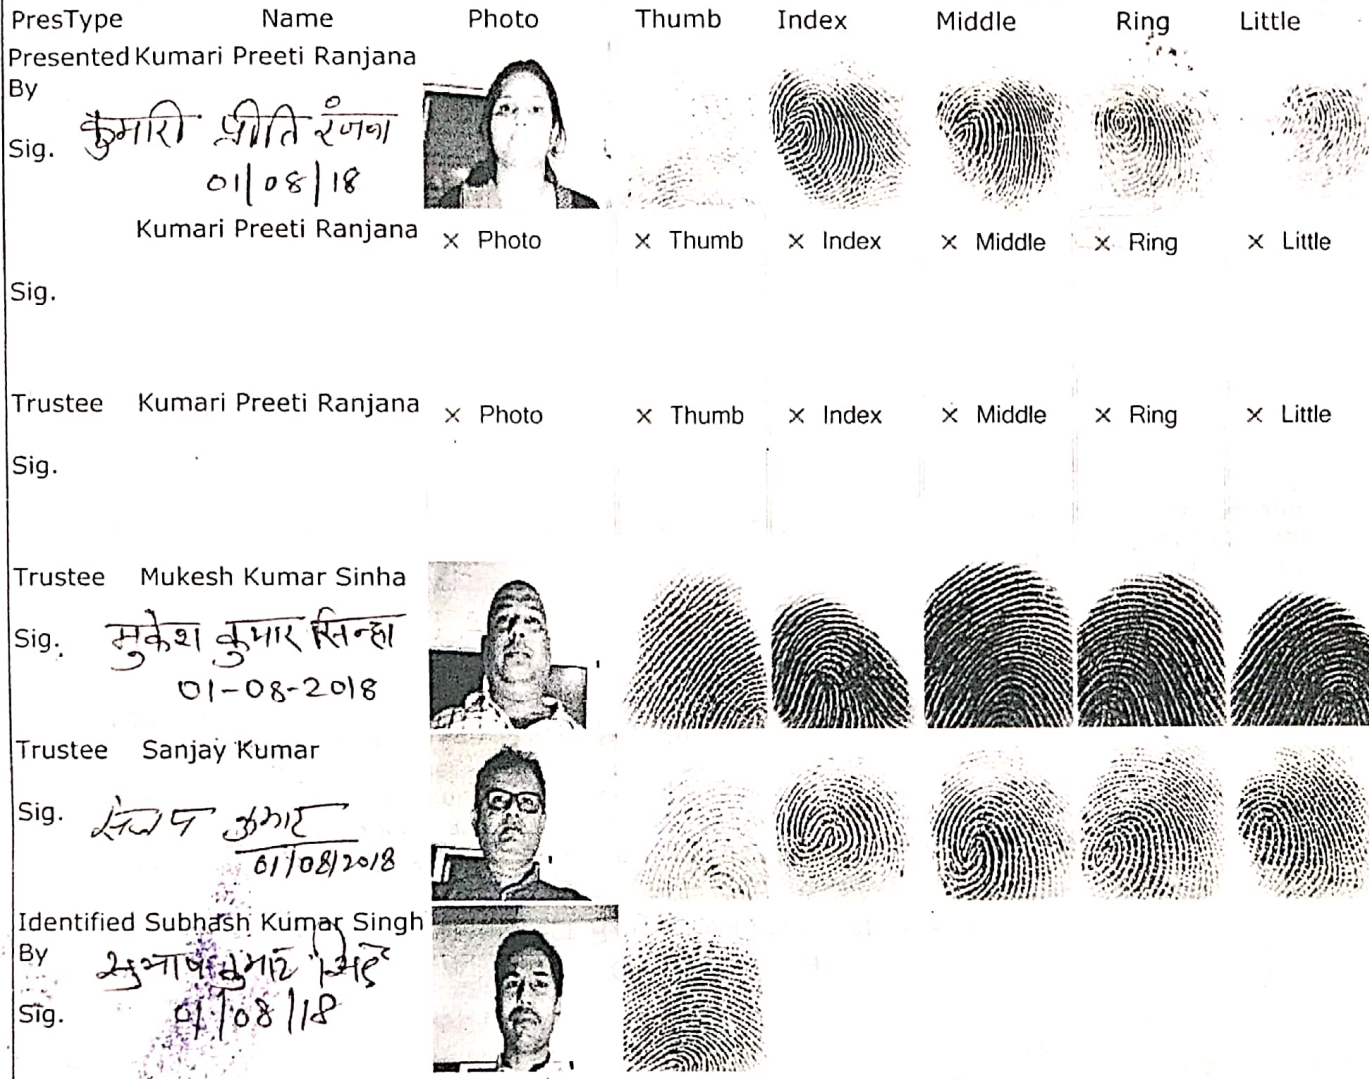 PresType Name Photo Thumb Index Middle Ring Little
Presented Kumari Preeti Ranjana
By
Sig. कुमारी प्रीति रंजना
01/08/18
Kumari Preeti Ranjana × Photo × Thumb × Index × Middle × Ring × Little
Sig.
Trustee Kumari Preeti Ranjana × Photo × Thumb × Index × Middle × Ring × Little
Sig.
Trustee Mukesh Kumar Sinha
Sig. मुकेश कुमार सिन्हा
01-08-2018
Trustee Sanjay Kumar
Sig. संजय कुमार
01/08/2018
Identified Subhash Kumar Singh
By सुभाष कुमार सिंह
Sig. 01/08/18